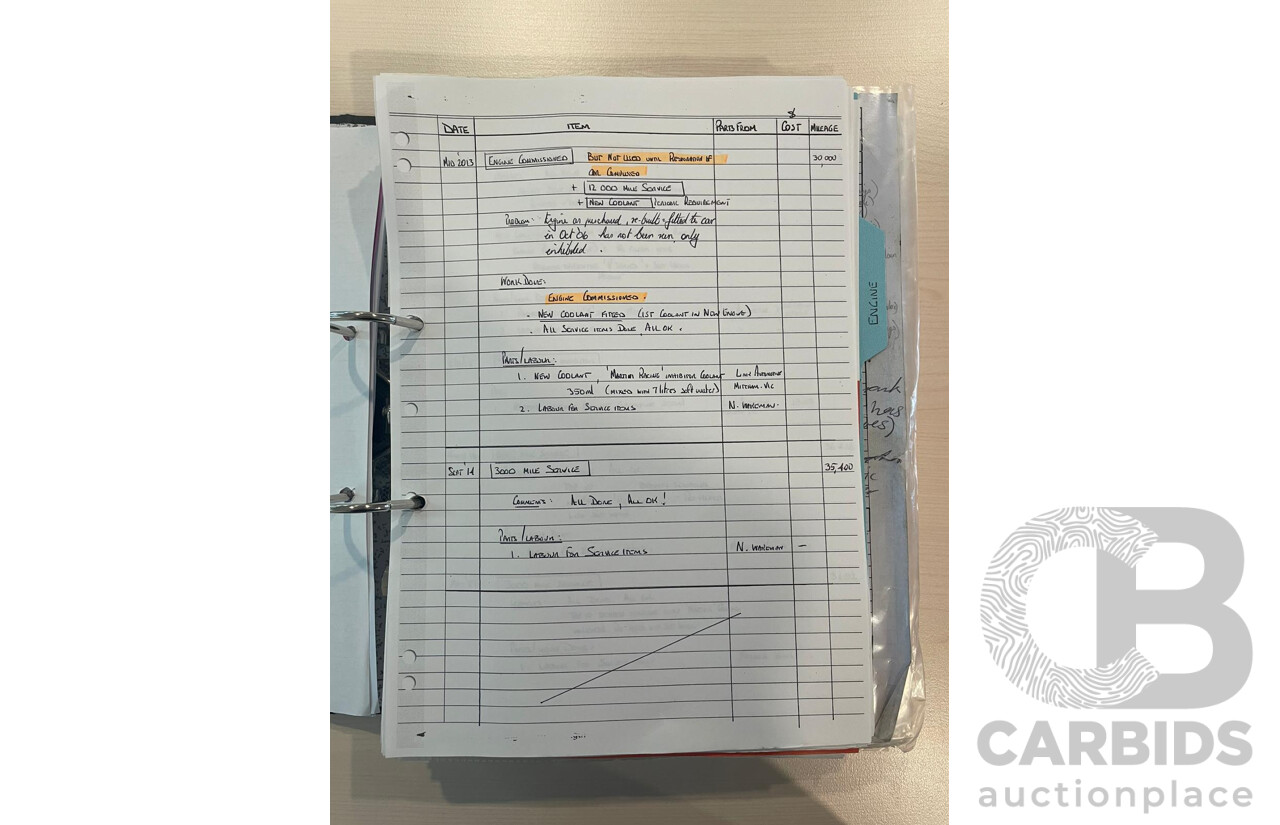 $
DATE ITEM PARTS FROM COST MILEAGE
MID 2013 ENGINE COMMISSIONED BUT NOT USED UNTIL RESTORATION OF 30,000
CAR COMPLETED
+ 12 000 MILE SERVICE
+ NEW COOLANT REQUIREMENT
PROBLEM: Engine as purchased, re-built & fitted to car
in Oct '06 has not been run, only
inhibited.
WORK DONE:
ENGINE COMMISSIONED.
. NEW COOLANT FITTED (1ST COOLANT IN NEW ENGINE)
. ALL SERVICE ITEMS DONE, ALL OK.
PARTS/LABOUR:
1. NEW COOLANT, RACING' INHIBITOR COOLANT
350ml (MIXED WITH 7 litres soft water) VIC
2. LABOUR FOR SERVICE ITEMS N. WAKEMAN.
SEPT '14 3000 MILE SERVICE 35,400
COMMENTS: ALL DONE, ALL OK!
PARTS/LABOUR:
1. LABOUR FOR SERVICE ITEMS N. WAKEMAN —
ENGINE
has
CB
CARBIDS
auctionplace